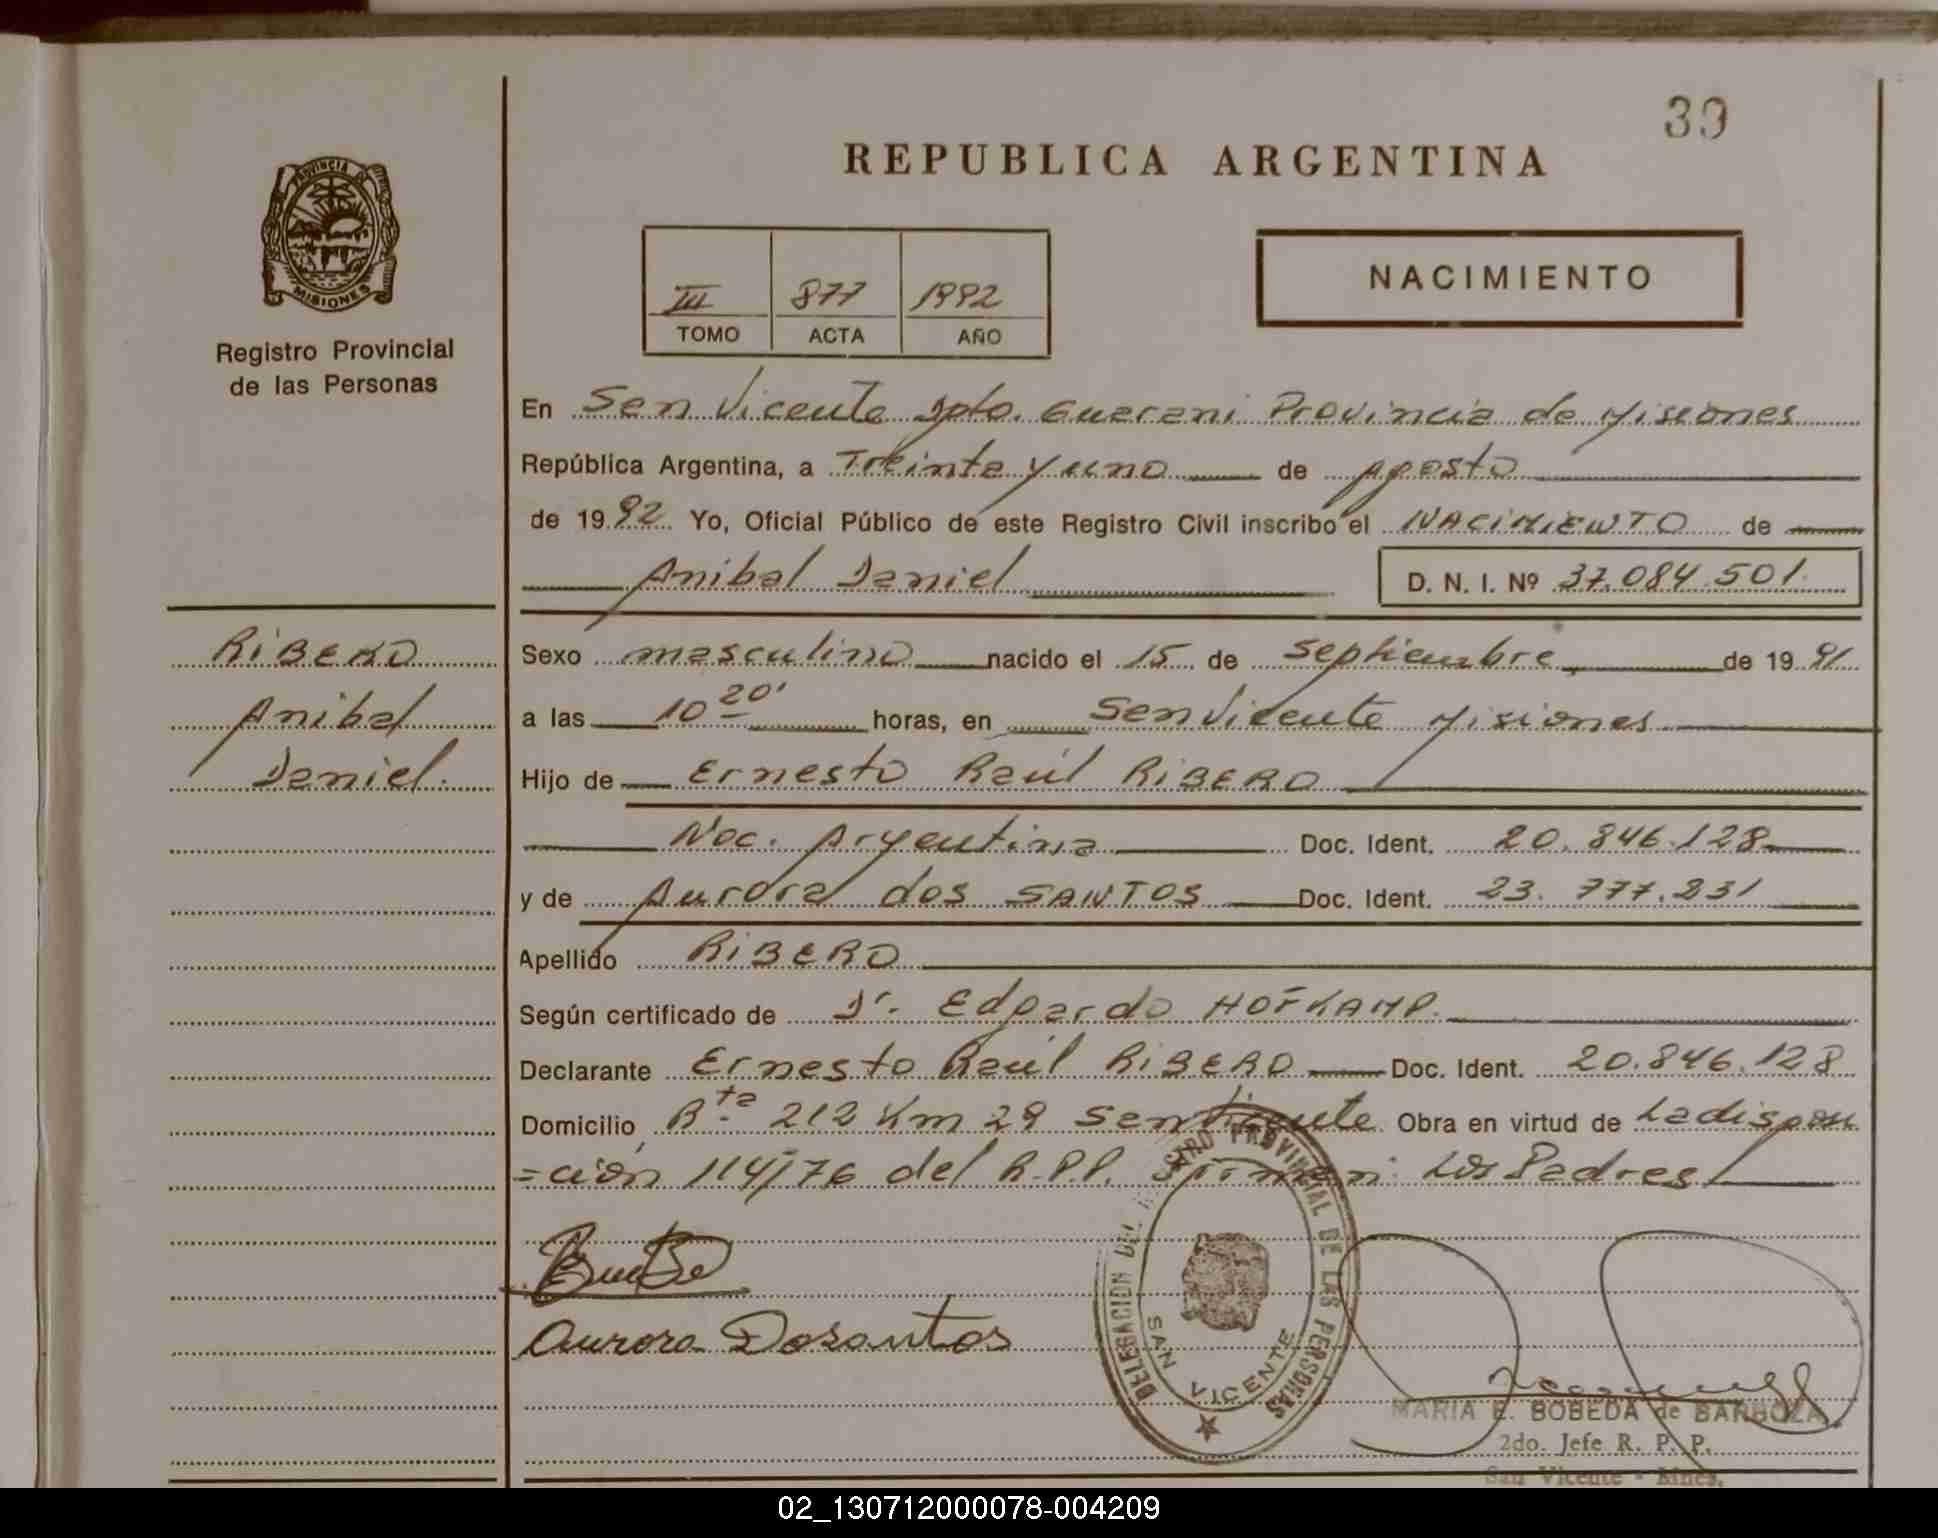 39
REPUBLICA ARGENTINA
PROVINCIA DE
MISIONES
Registro Provincial
de las Personas
III 877 1992
TOMO ACTA AÑO
NACIMIENTO
En San Vicente Dpto. Guarani Provincia de Misiones
República Argentina, a Treinta y uno de Agosto
de 1992 Yo, Oficial Público de este Registro Civil inscribo el NACIMIENTO de
Anibal Daniel D. N. I. Nº 37.084.501
RIBERO
Anibal
Daniel.
Sexo masculino nacido el 15 de septiembre de 1991
a las 10 20' horas, en San Vicente Misiones
Hijo de Ernesto Raúl RIBERO
Nac. Argentina Doc. Ident. 20.846.128
y de Aurora dos SANTOS Doc. Ident. 23.777.231
Apellido RIBERO
Según certificado de Dr. Edgardo HOFKAMP.
Declarante Ernesto Raúl RIBERO Doc. Ident. 20.846.128
Domicilio Rta 212 Km 29 San Vicente Obra en virtud de La dispo
=ción 114/76 del R.P.P. Firman: Los Padres
Aurora Dosantos
DELEGACION DEL REGISTRO PROVINCIAL DE LAS PERSONAS
SAN VICENTE
MARIA E. BOBEDA de BARBOZA
2do. Jefe R. P. P.
San Vicente - Mnes.
02_130712000078-004209